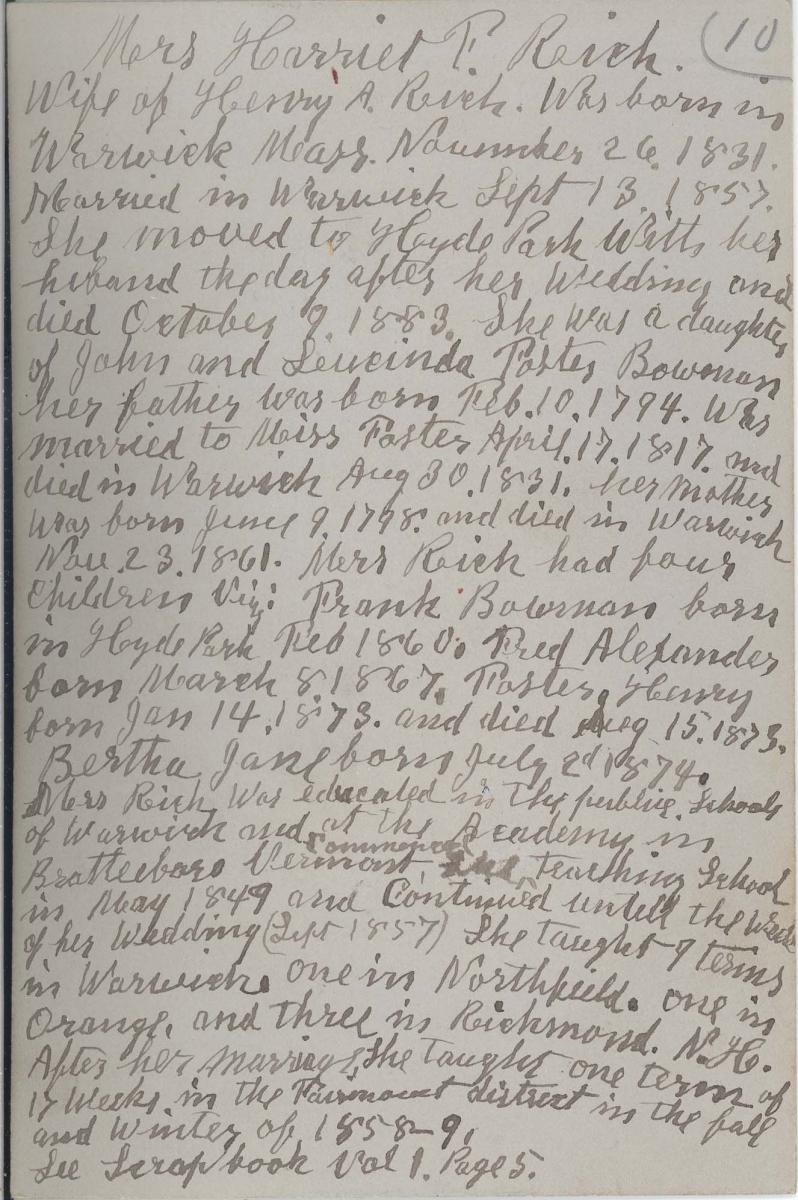 10
Mrs Harriet F. Rich.
Wife of Henry A. Rich. Was born in
Warwick Mass. November 26. 1831.
Married in Warwick Sept 13. 1857.
She moved to Hyde Park With her
husband the day after her Wedding and
died October 9. 1883. She Was a daughter
of John and Leucinda Foster Bowman
her father was born Feb. 10. 1794. Was
married to Miss Foster April. 17. 1817. and
died in Warwick Aug 30. 1831. her mother
was born June 9. 1798. and died in Warwick
Nov. 23. 1861. Mrs Rich had four
Children Viz: Frank Bowman born
in Hyde Park Feb 1860. Fred Alexander
born March 8. 1867. Foster Henry
born Jan 14. 1873. and died Aug 15. 1873.
Bertha Jane born July 2d 1874.
Mrs Rich Was educated in the public Schools
of Warwick and at the Academy in
Brattleboro Vermont Commenced Teaching School
in May 1849 and Continued untill the Week
of her Wedding (Sept 1857) She taught 9 terms
in Warwick. one in Northfield. one in
Orange, and three in Richmond. N.H.
After her marriage, She taught one term of
17 Weeks in the Fairmount district in the fall
and Winter of 1858-9.
See Scrap book Vol 1. Page 5.